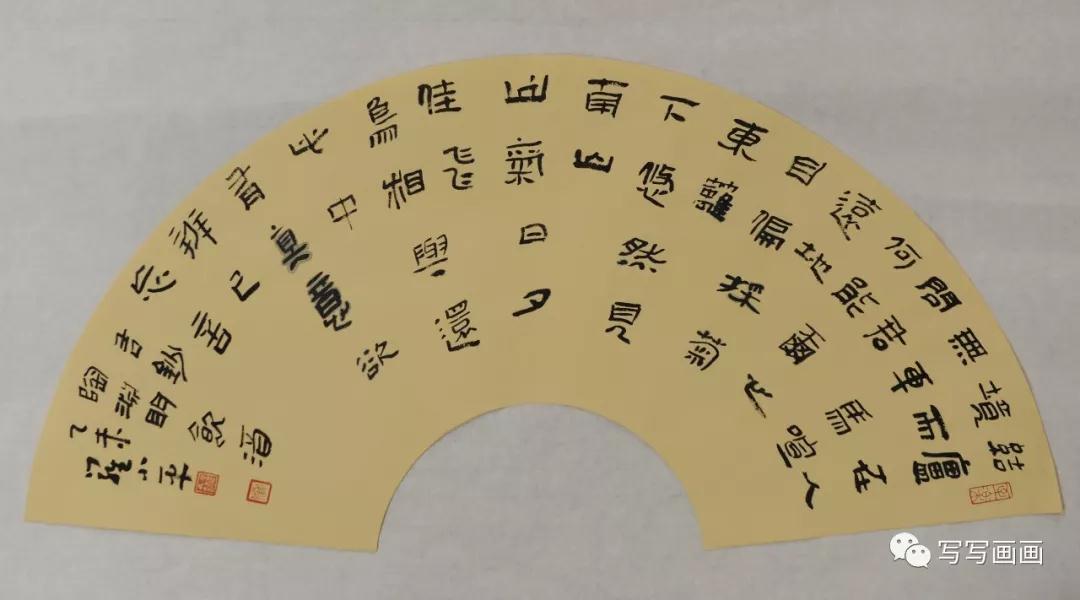 結廬在人
境而
無車馬喧
問君
何能爾心
遠地
自偏採菊
東籬
下悠然見
南山
山氣日夕
佳飛
鳥相與還
此中
有真意欲
辨已
忘言
右鈔
陶淵明飲酒
乙未
羅小平
写写画画